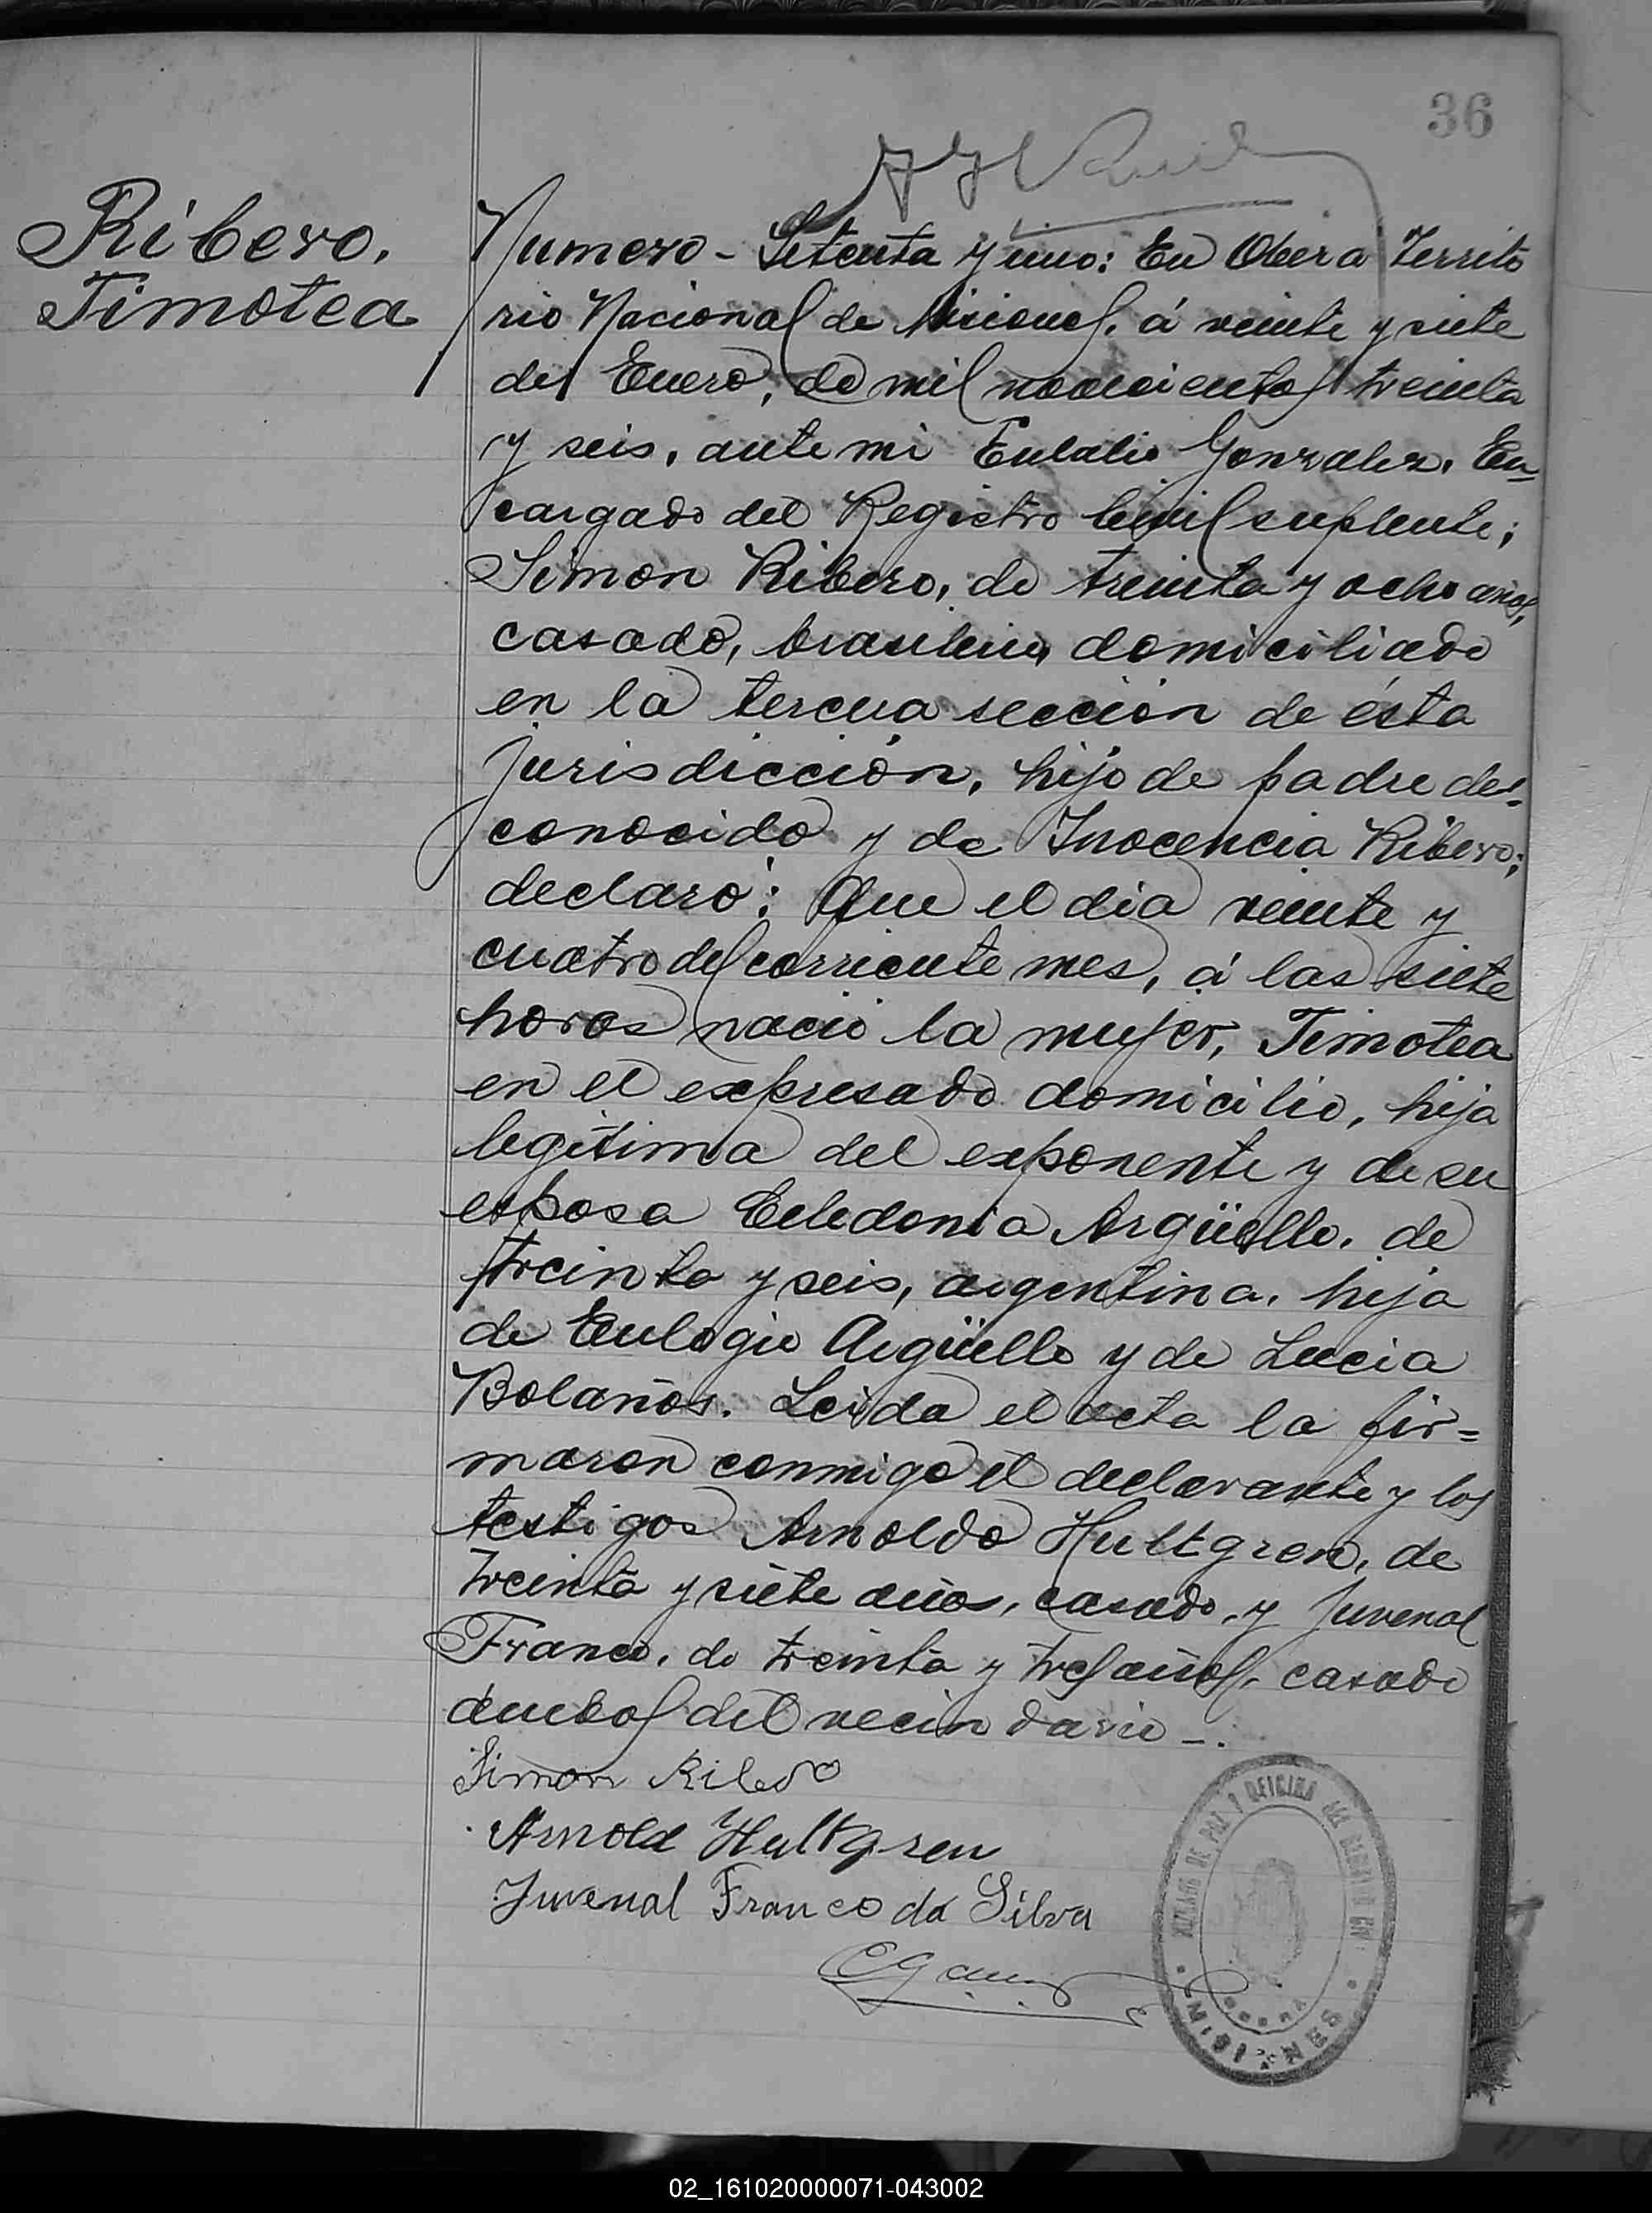 36
Ribero,
Timotea
Numero - Setenta y uno: En Obera Territo
rio Nacional de Misiones, á veinte y siete
de Enero, de mil novecientos treinta
y seis, ante mi Eulalio Gonzalez, En=
cargado del Registro Civil suplente;
Simon Ribero, de treinta y ocho años,
casado, brasilero, domiciliado
en la tercera sección de ésta
jurisdicción, hijo de padre des=
conocido y de Inocencia Ribero;
declaró: Que el dia veinte y
cuatro del corriente mes, á las siete
horas nació la mujer, Timotea
en el expresado domicilio, hija
legítima del exponente y de su
esposa Celedonia Argüello, de
treinta y seis, argentina, hija
de Eulogio Argüello y de Lucia
Bolaños. Leida el acta la fir=
maron conmigo el declarante y los
testigos Arnoldo Hultgren, de
treinta y siete años, casado, y Juvenal
Franco, de treinta y tres años, casado
ambos del vecindario -.
Simon Ribero
Arnold Hultgren
Juvenal Franco da Silva
JUZGADO DE PAZ Y OFICINA DEL REGISTRO CIVIL
OBERA
MISIONES
02_161020000071-043002